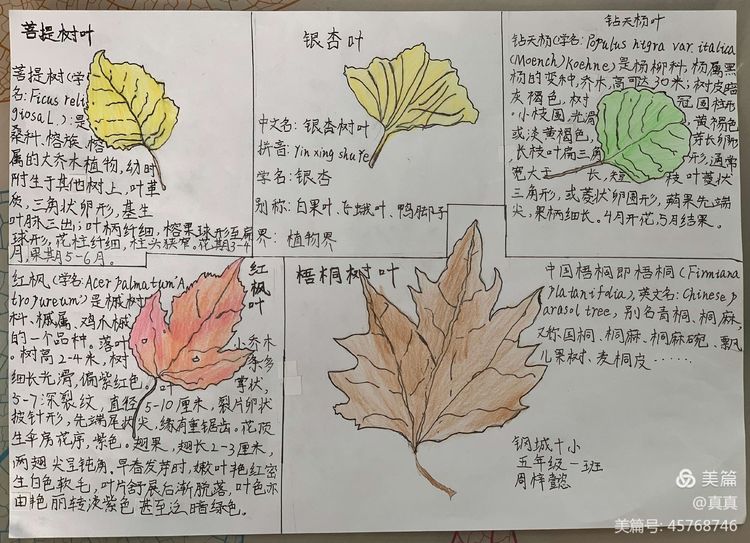 菩提树叶
菩提树(学
名:Ficus reli
giosa L.):是
桑科、榕族、榕
属的大乔木植物,幼时
附生于其他树上,叶革
质,三角状卵形,基生
叶脉三出;叶柄纤细,榕果球形至扁
球形,花柱纤细,柱头狭窄。花期3-4
月,果期5-6月。
银杏叶
中文名:银杏树叶
拼音:Yin xing shu Ye
学名:银杏
别称:白果叶、飞蛾叶、鸭脚子
界:植物界
钻天杨叶
钻天杨(学名:Populus nigra var. italica
(Moench) Koehne)是杨柳科,杨属黑
杨的变种,乔木,高可达30米;树皮暗
灰褐色,树冠圆柱形。
小枝圆,光滑,黄褐色
或淡黄褐色,芽长卵形,
长枝叶扁三角形,通常
宽大于长,短枝叶菱状
三角形,或菱状卵圆形,蒴果先端
尖,果柄细长。4月开花,5月结果。
红枫叶
红枫(学名:Acer palmatum'A
tropureum')是槭树
科、槭属、鸡爪槭
的一个品种。落叶小乔木
。树高2-4米,树条多
细长光滑,偏紫红色。叶掌状,
5-7深裂纹,直径5-10厘米,裂片卵状
披针形,先端尾状尖,缘有重锯齿。花顶
生伞房花序,紫色。翅果,翅长2-3厘米,
两翅尖呈钝角。早春发芽时,嫩叶艳红密
生白色软毛,叶片舒展后渐脱落,叶色亦
由艳丽转淡紫色甚至泛暗绿色。
梧桐树叶
中国梧桐即梧桐(Firmiana
platanifdia),英文名:Chinese p
arasol tree,别名青桐、桐麻,
又称国桐、桐麻、桐麻碗、瓢
儿果树、麦桐皮……
钢城十小
五年级-3班
周梓懿
美篇
@真真
美篇号:45768746